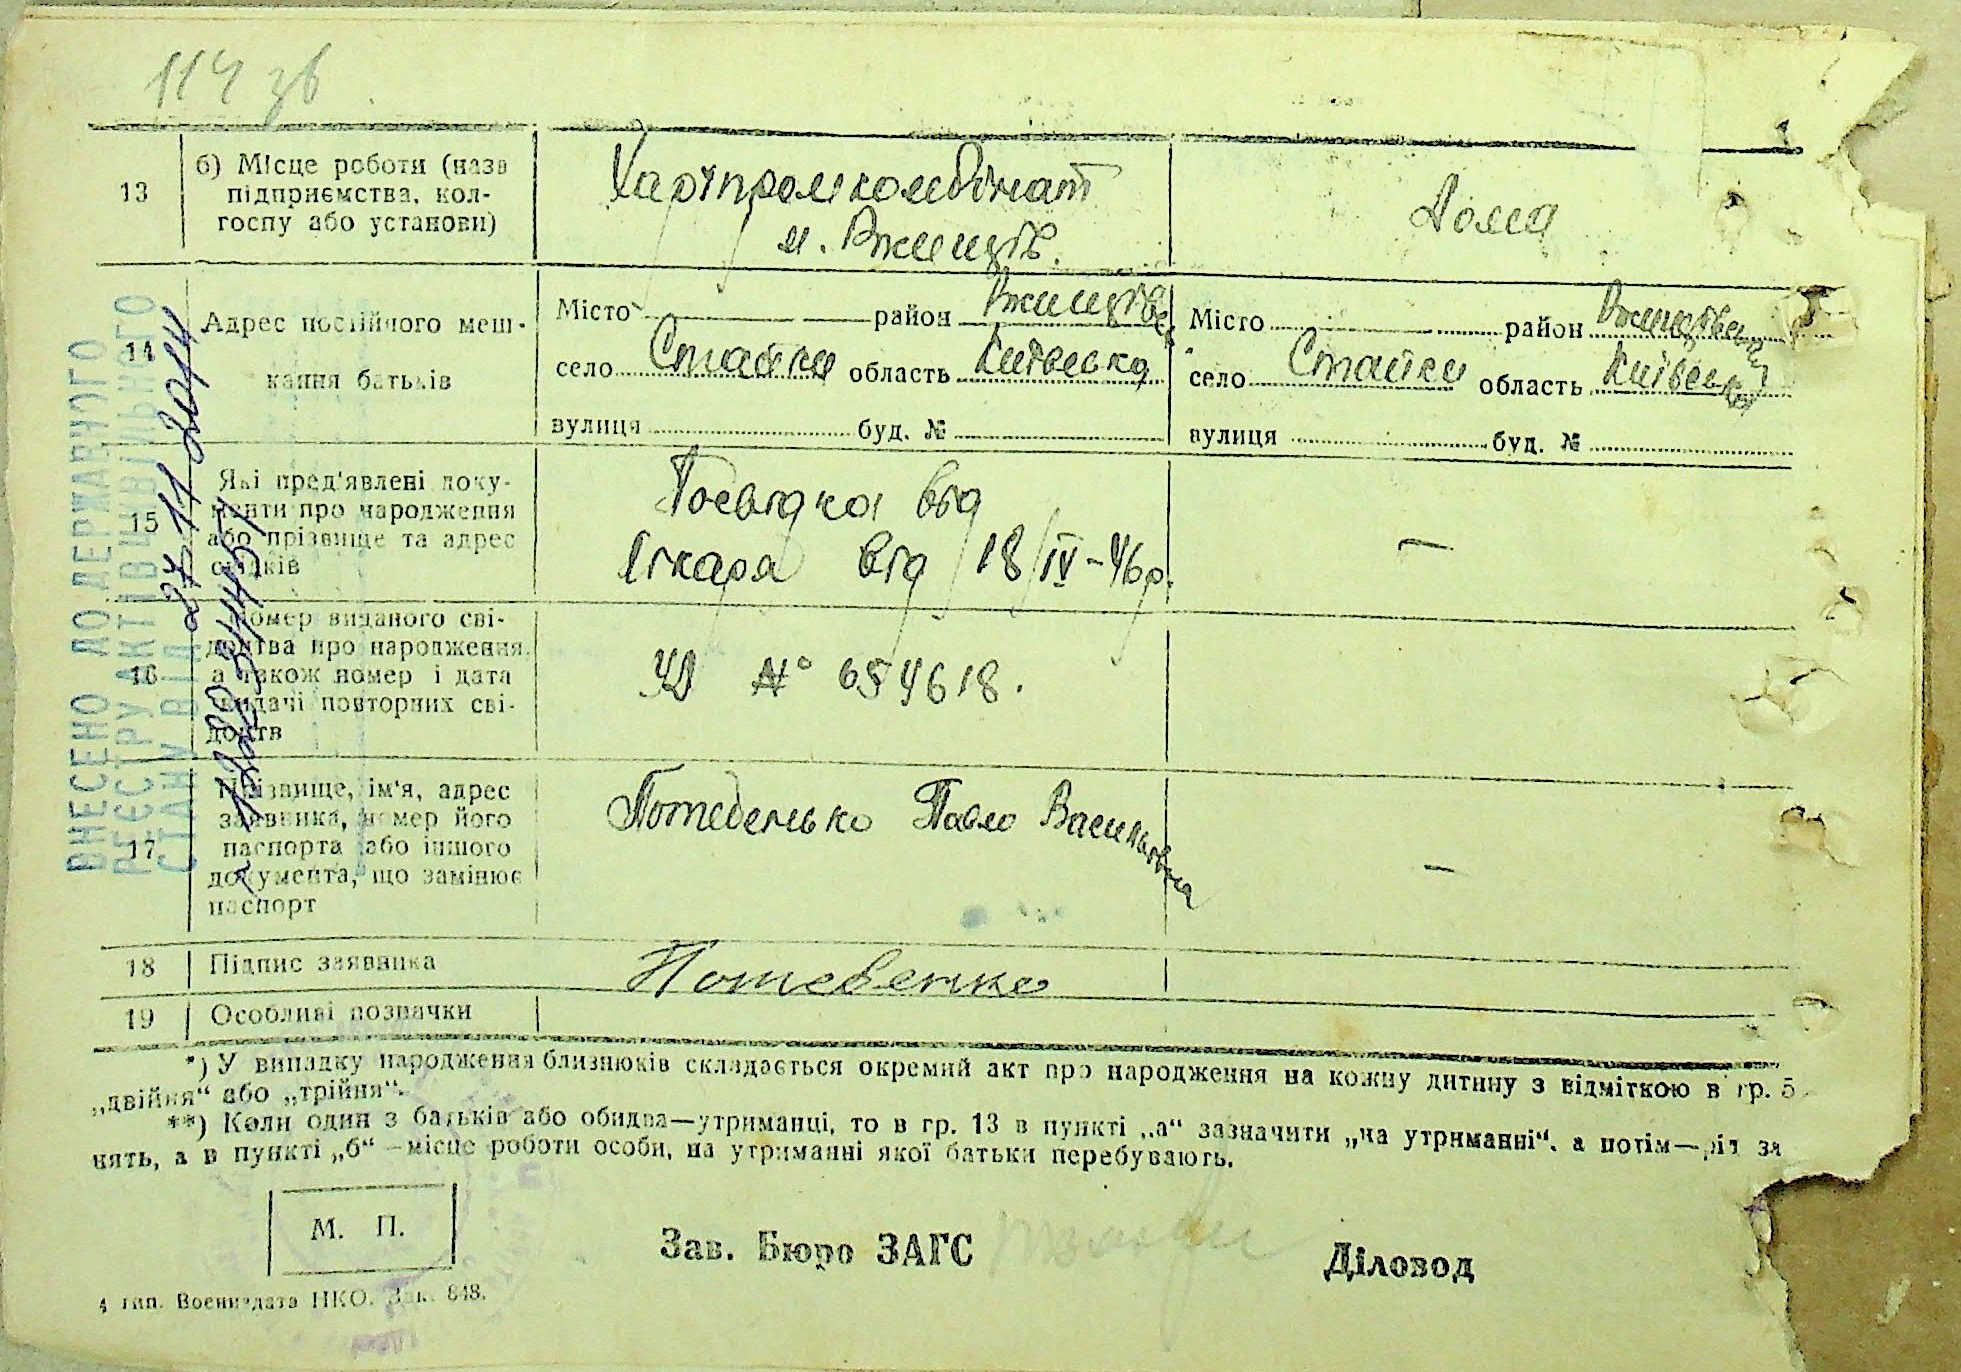 114 зв
13
б) Місце роботи (назв
підприємства, кол-
госпу або установи)
Харчпромкомбінат
м. Ржищів.
Дома
14
Адрес постійного меш-
кання батьків
Місто район Ржищівськ
село Стайки область Київська
вулиця буд. №
Місто район Ржищівський
село Стайки область Київська
вулиця буд. №
15
Які пред'явлені доку-
менти про народження
або прізвище та адрес
свідків
Посвідка від
лікаря від 18/IV-46р.
—
16
Номер виданого сві-
доцтва про народження,
а також номер і дата
видачі повторних сві-
доцтв
УД № 654618.
17
Прізвище, ім'я, адрес
заявника, номер його
паспорта або іншого
документа, що замінює
паспорт
Потебенько Павло Васильович
—
18
Підпис заявника
Потебенко
19
Особливі позначки
*) У випадку народження близнюків складається окремий акт про народження на кожну дитину з відміткою в гр. 5
„двійня“ або „трійня“.
**) Коли один з батьків або обидва—утриманці, то в гр. 13 в пункті „а“ зазначити „на утриманні“, а потім—рід за
нять, а в пункті „б“—місце роботи особи, на утриманні якої батьки перебувають.
М. П.
Зав. Бюро ЗАГС
Діловод
4 тип. Воениздата НКО. Зак. 848.
ВНЕСЕНО ДО ДЕРЖАВНОГО
РЕЄСТРУ АКТІВ ЦИВІЛЬНОГО
СТАНУ ВІД 27 11 2014